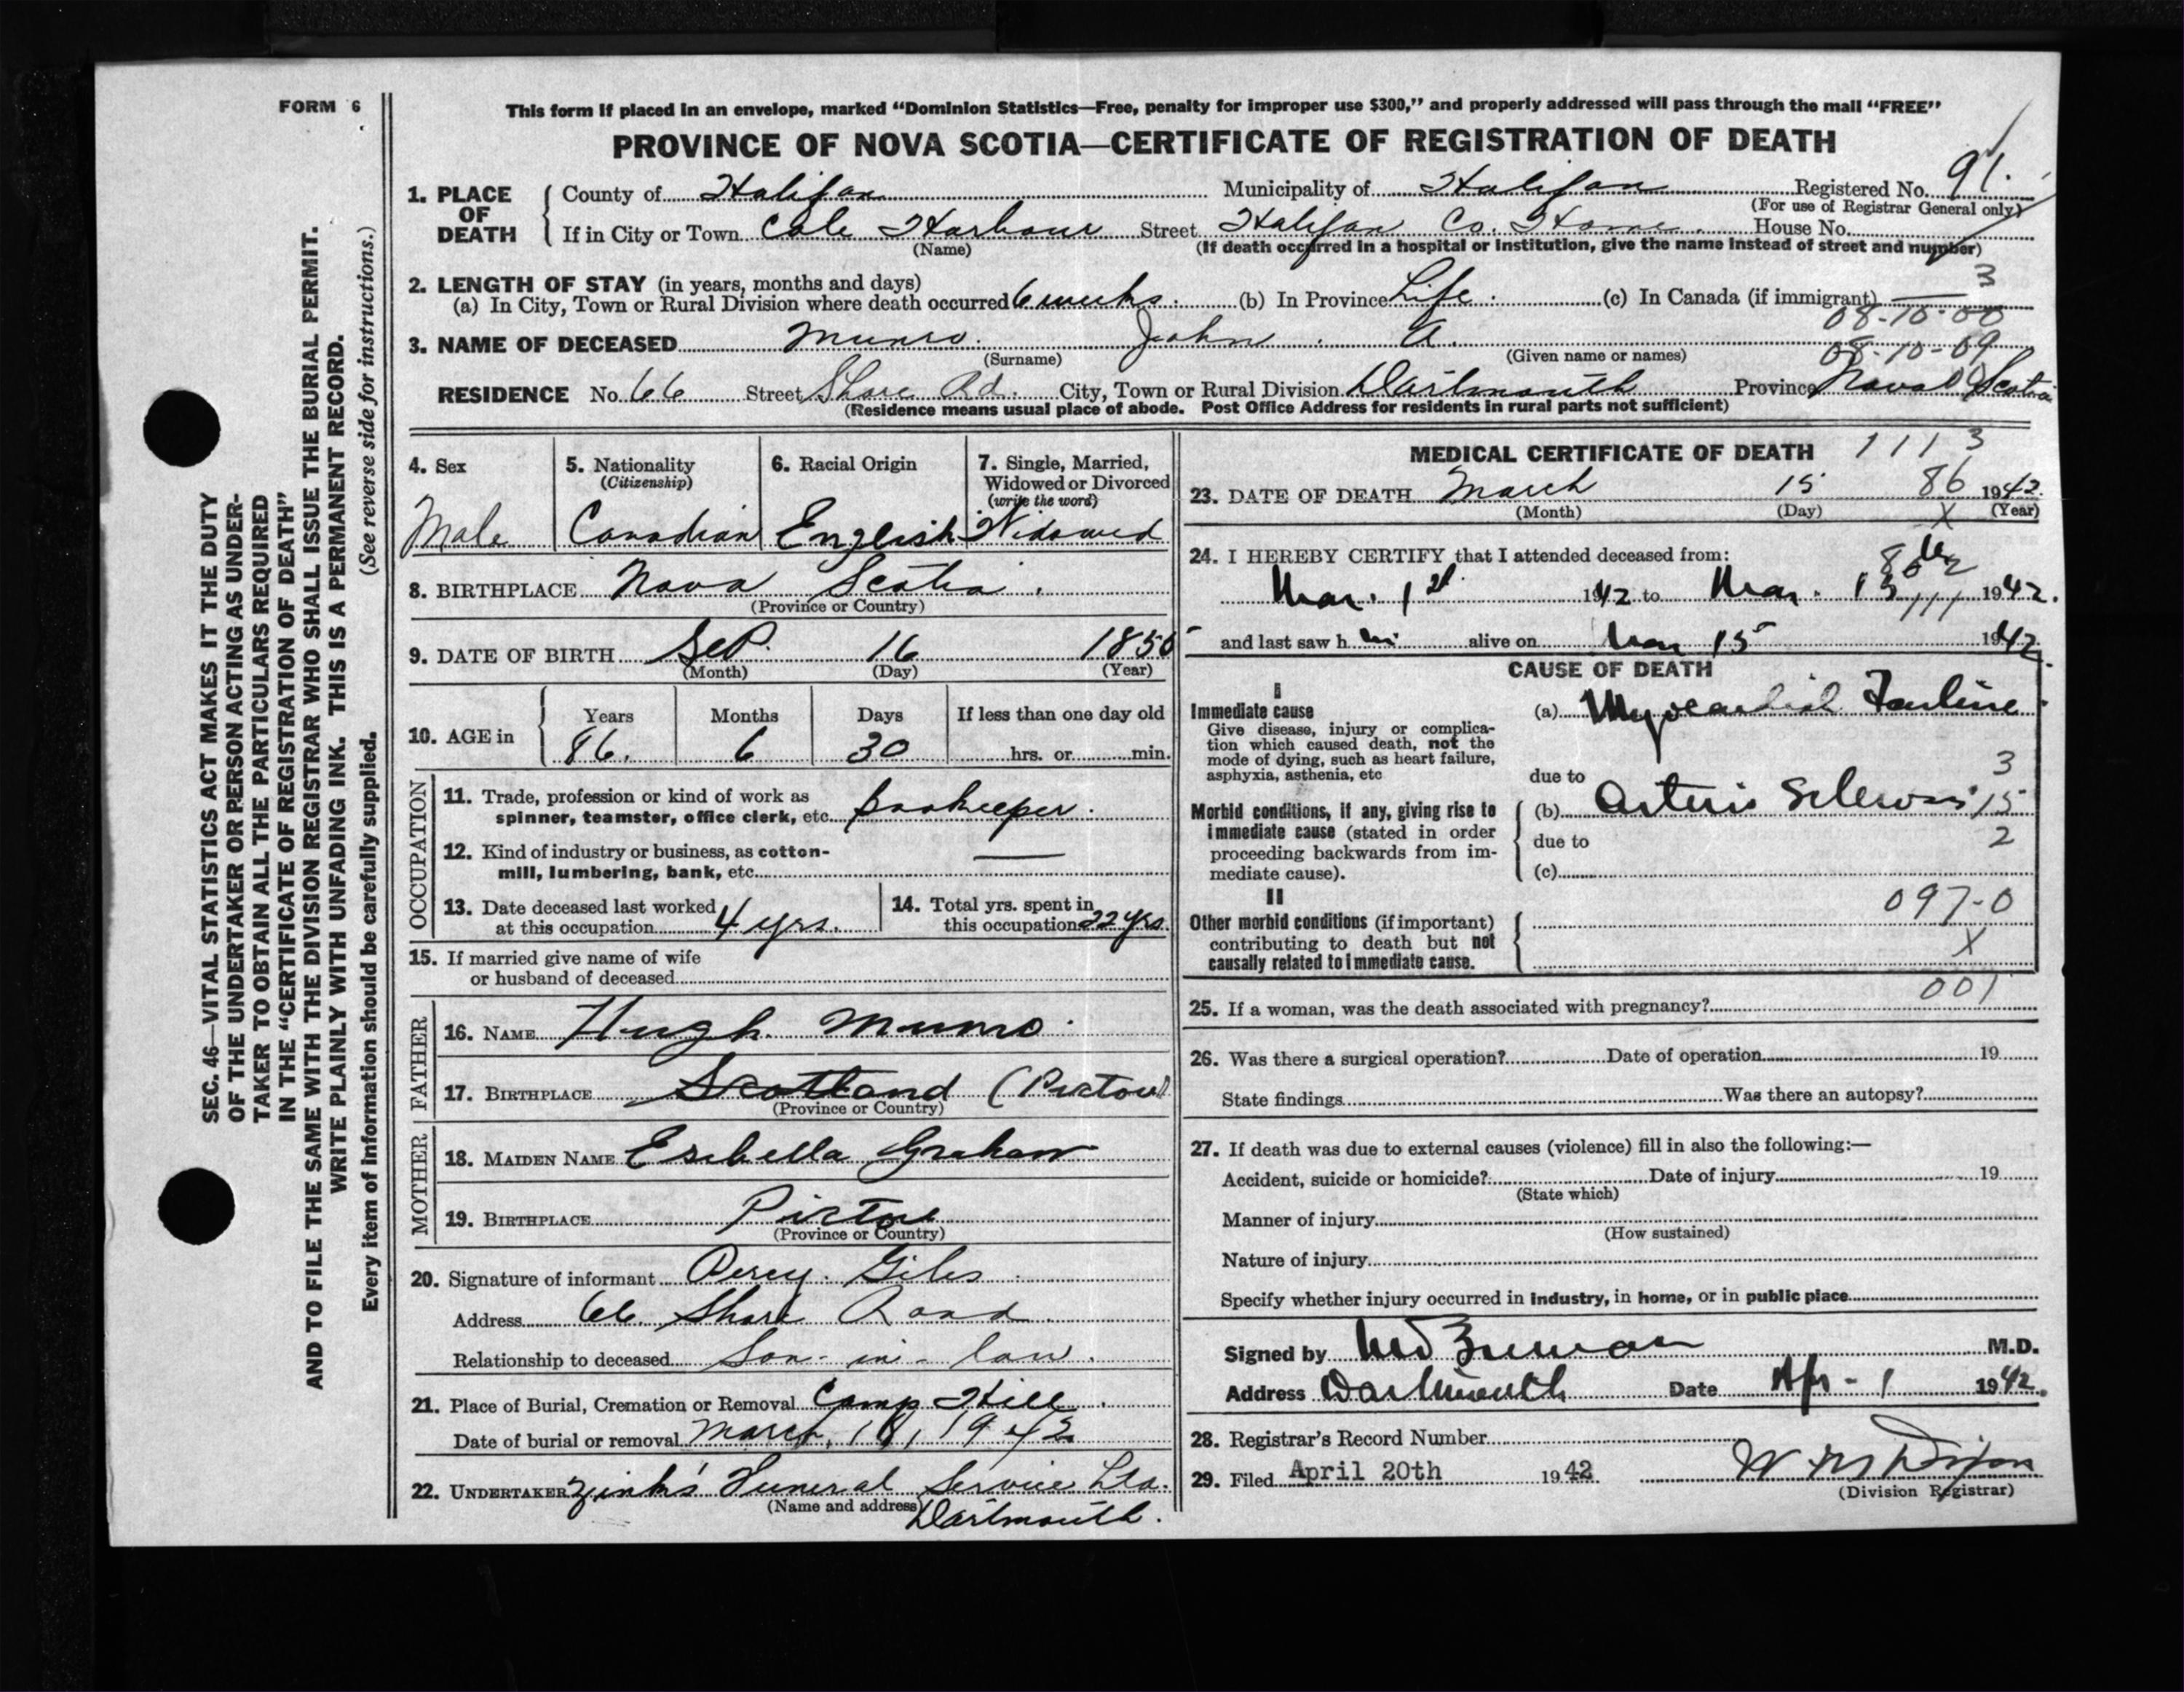 FORM 6
This form if placed in an envelope, marked “Dominion Statistics—Free, penalty for improper use $300,” and properly addressed will pass through the mail “FREE”
PROVINCE OF NOVA SCOTIA—CERTIFICATE OF REGISTRATION OF DEATH
1. PLACE OF DEATH
County of Halifax Municipality of Halifax Registered No. 91.
(For use of Registrar General only)
If in City or Town Cole Harbour Street Halifax Co. Home. House No.
(Name) (If death occurred in a hospital or institution, give the name instead of street and number)
2. LENGTH OF STAY (in years, months and days) 3
(a) In City, Town or Rural Division where death occurred 6 weeks. (b) In Province Life. (c) In Canada (if immigrant) —
08-10-00
3. NAME OF DECEASED Munro. John. A.
(Surname) (Given name or names) 08-10-09
RESIDENCE No. 66 Street Shore Rd. City, Town or Rural Division Dartmouth Province Nova Scotia
(Residence means usual place of abode. Post Office Address for residents in rural parts not sufficient)
4. Sex
Male
5. Nationality
(Citizenship)
Canadian
6. Racial Origin
English
7. Single, Married,
Widowed or Divorced
(write the word)
Widowed
8. BIRTHPLACE Nova Scotia.
(Province or Country)
9. DATE OF BIRTH Sep. 16 1855
(Month) (Day) (Year)
10. AGE in
Years Months Days If less than one day old
86. 6 30 hrs. or min.
OCCUPATION
11. Trade, profession or kind of work as
spinner, teamster, office clerk, etc. bookeeper.
12. Kind of industry or business, as cotton-
mill, lumbering, bank, etc. —
13. Date deceased last worked
at this occupation 4 yrs.
14. Total yrs. spent in
this occupation 22 yrs.
15. If married give name of wife
or husband of deceased
FATHER
16. NAME Hugh Munro.
17. BIRTHPLACE Scotland (Pictou)
(Province or Country)
MOTHER
18. MAIDEN NAME Esebella Graham
19. BIRTHPLACE Pictou
(Province or Country)
20. Signature of informant Percy. Giles.
Address 66 Shore Road.
Relationship to deceased Son-in-law.
21. Place of Burial, Cremation or Removal Camp Hill.
Date of burial or removal March, 18, 1942
22. UNDERTAKER Zink's Funeral Service Ltd.
(Name and address) Dartmouth.
MEDICAL CERTIFICATE OF DEATH 1113
23. DATE OF DEATH March 15 86 1942.
(Month) (Day) X (Year)
24. I HEREBY CERTIFY that I attended deceased from:
Mar. 1st 1942 to Mar. 1942.
and last saw h im alive on Mar 15 1942.
CAUSE OF DEATH
I
Immediate cause
Give disease, injury or complica-
tion which caused death, not the
mode of dying, such as heart failure,
asphyxia, asthenia, etc
(a) Myocardial Failure.
3
due to
Morbid conditions, if any, giving rise to
immediate cause (stated in order
proceeding backwards from im-
mediate cause).
(b) Arterio Sclerosis 15
due to 2
(c)
II
Other morbid conditions (if important)
contributing to death but not
causally related to immediate cause.
097-0
X
001
25. If a woman, was the death associated with pregnancy?
26. Was there a surgical operation? Date of operation 19
State findings Was there an autopsy?
27. If death was due to external causes (violence) fill in also the following:—
Accident, suicide or homicide? Date of injury 19
(State which)
Manner of injury
(How sustained)
Nature of injury
Specify whether injury occurred in industry, in home, or in public place
Signed by M.D.
Address Dartmouth Date Apr - 1 1942.
28. Registrar's Record Number
29. Filed April 20th 1942
(Division Registrar)
SEC. 46—VITAL STATISTICS ACT MAKES IT THE DUTY
OF THE UNDERTAKER OR PERSON ACTING AS UNDER-
TAKER TO OBTAIN ALL THE PARTICULARS REQUIRED
IN THE “CERTIFICATE OF REGISTRATION OF DEATH”
AND TO FILE THE SAME WITH THE DIVISION REGISTRAR WHO SHALL ISSUE THE BURIAL PERMIT.
WRITE PLAINLY WITH UNFADING INK. THIS IS A PERMANENT RECORD.
Every item of information should be carefully supplied. (See reverse side for instructions.)